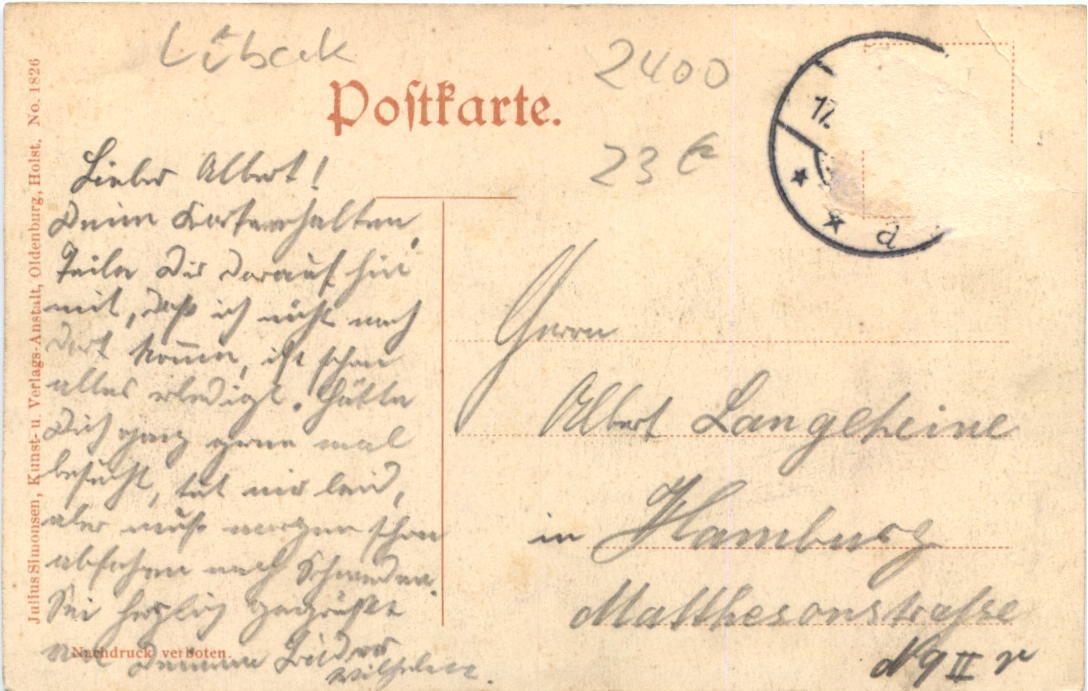 Lübeck
2400
Postkarte.
23 €
Julius Simonsen, Kunst- u. Verlags-Anstalt, Oldenburg, Holst. No. 1826
Lieber Albert!
Deine Karte erhalten,
Teile Dir darauf hin
mit, daß ich nicht nach
dort komme, ist schon
alles erledigt. Hätte
Dich ganz gerne mal
besucht, tut mir leid,
aber muß morgen schon
abfahren nach Schweden.
Sei herzlich gegrüßt
von Deinem Bruder
Wilhelm.
Nachdruck verboten.
17.
Herrn
Albert Langeheine
in Hamburg
Matthesonstrasse
N 9 II r